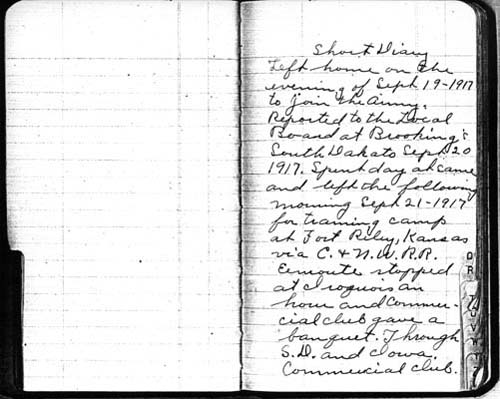 Short Diary
Left home on the
evening of Sept 19-1917
to join the army.
Reported to the Local
Board at Brookings
South Dakato Sept 20
1917. Spent day at same
and left the following
morning Sept 21-1917
for training camp
at Fort Riley, Kansas
via C. & N.W. R.R.
Enroute stopped
at Iroquois an
hour and Commer-
cial club gave a
banquet. Through
S.D. and Iowa.
Commercial club.